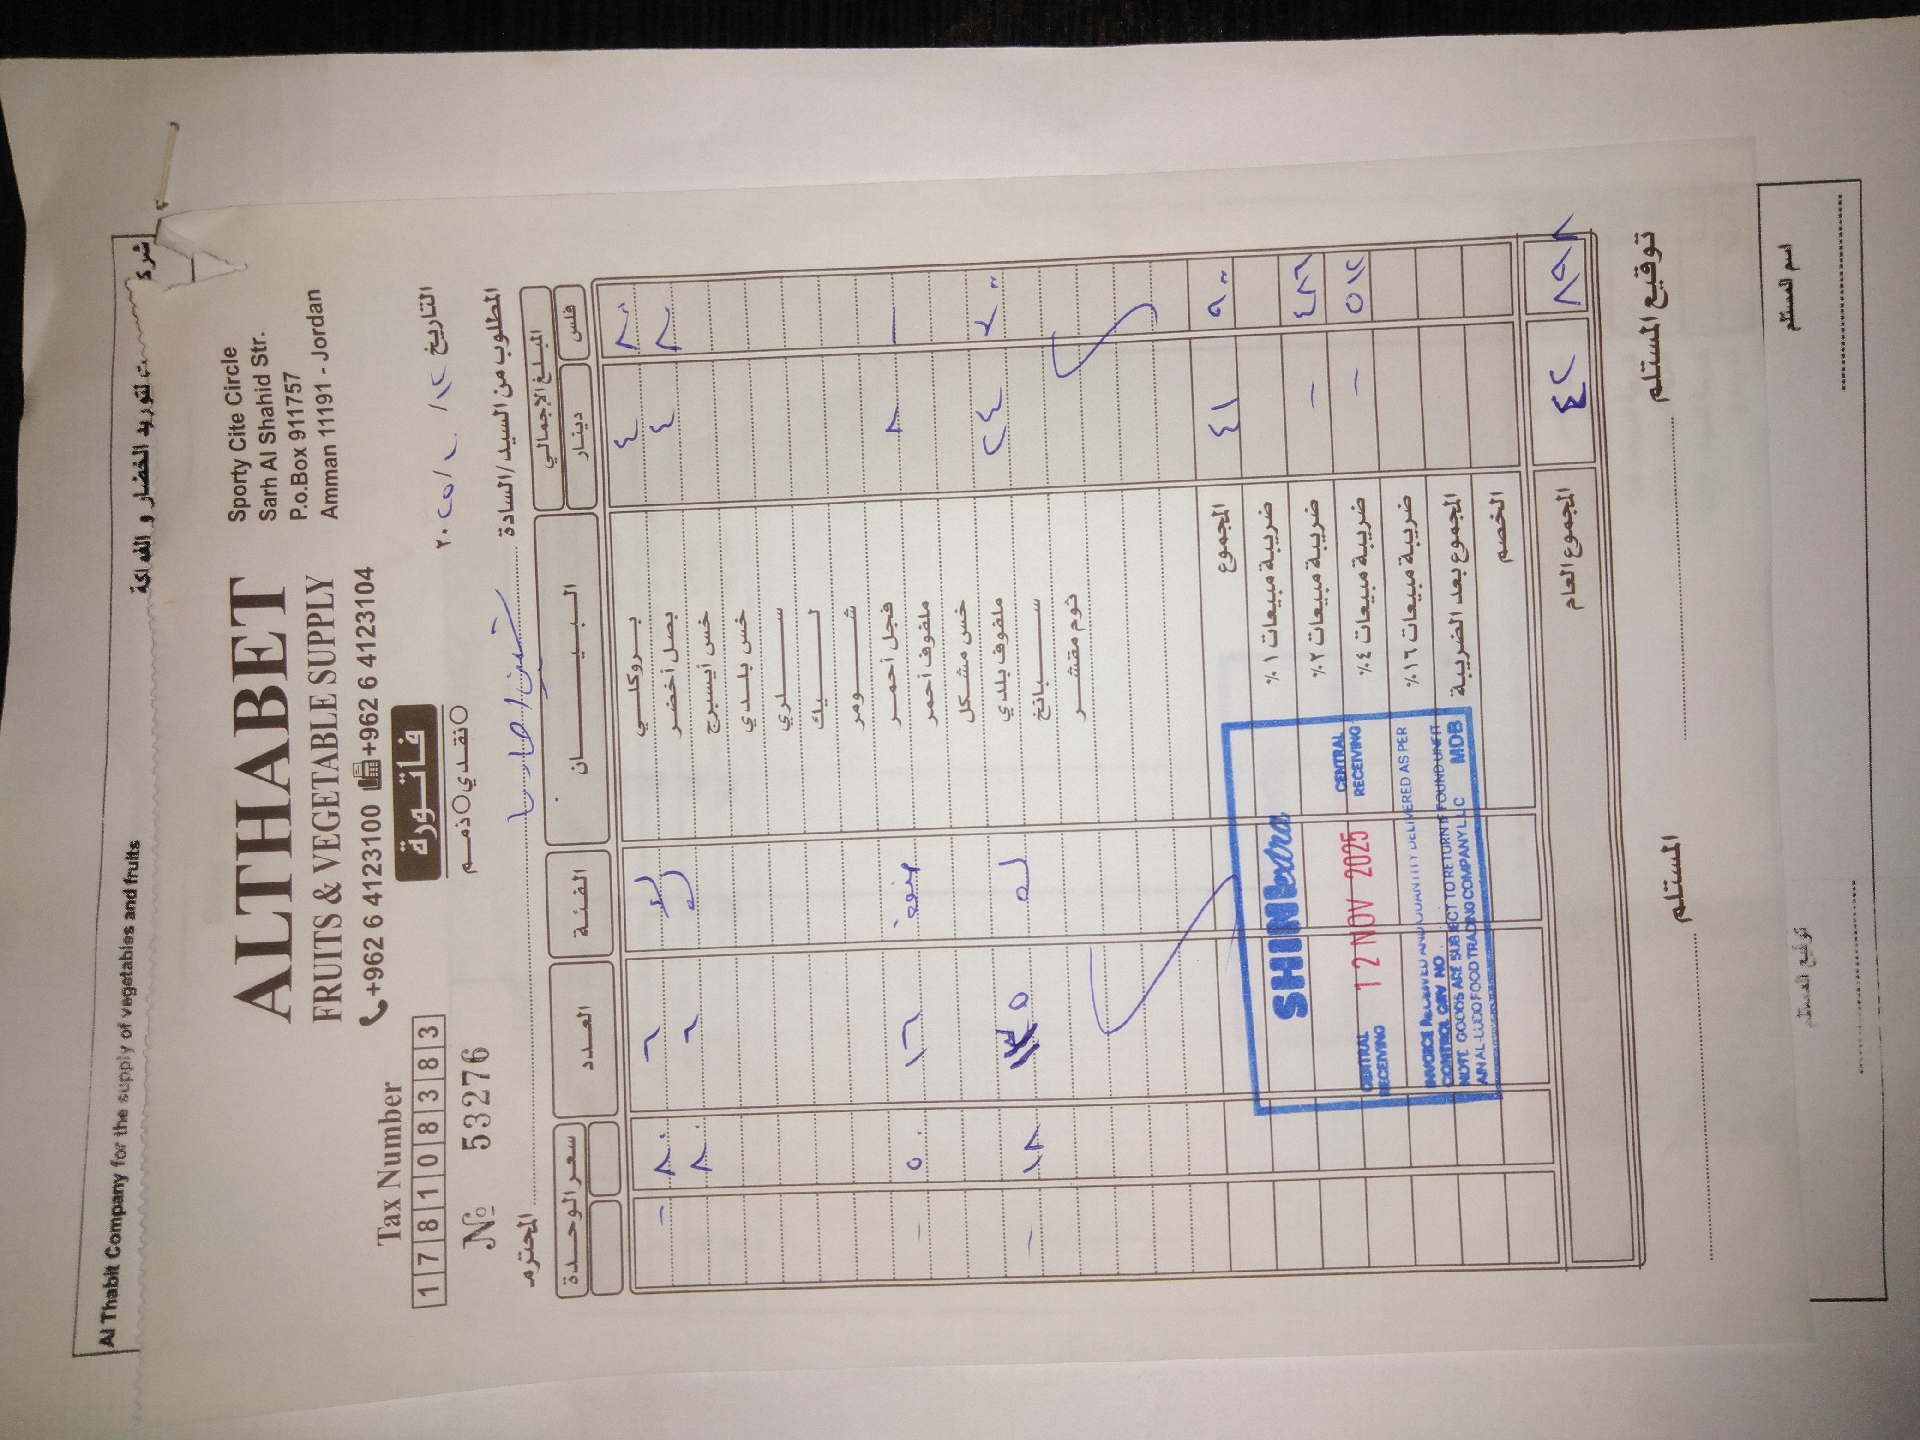 Al Thabit Company for the supply of vegetables and fruits
لتوريد الخضار و الفواكة
ALTHABET
FRUITS & VEGETABLE SUPPLY
+962 6 4123100 +962 6 4123104
Sporty Cite Circle
Sarh Al Shahid Str.
P.o.Box 911757
Amman 11191 - Jordan
Tax Number
1 7 8 1 0 8 3 8 3
№ 53276
فاتورة
نقدي ذمم
التاريخ
المطلوب من السيد/السادة
المحترم
المبلغ الإجمالي البيان الفئة العدد سعر الوحدة
فلس دينار
٨٠٠ ٤ بروكلي ٦ ٨٠٠ -
٨٠٠ ٤ بصل أخضر ٦ ٨٠٠ -
خس أيسبرج
خس بلدي
سلري
ليك
شومر
- ٨ فجل أحمر ١٦ ٥٠٠ -
ملفوف أحمر
خس مشكل
ملفوف بلدي ١٨٠ -
سبانخ
ثوم مقشر
٩٠٠ ٤١ المجموع
ضريبة مبيعات ١ %
٤٨٦ - ضريبة مبيعات ٢%
٥١٢ - ضريبة مبيعات ٤ %
ضريبة مبيعات ١٦%
المجموع بعد الضريبة
الخصم
٨٩٨ ٤٢ المجموع العام
SHINI extra
CENTRAL RECEIVING 12 NOV 2025 CENTRAL RECEIVING
INVOICE RECEIVED AND QUANTITY DELIVERED AS PER
CONTROL GRV NO.
NOTE GOODS ARE SUBJECT TO RETURN IF FOUND UNFIT
AIN AL-LUDO FOOD TRADING COMPANY L.L.C MDB
توقيع المستلم
المستلم
اسم المستلم
توقيع المستلم